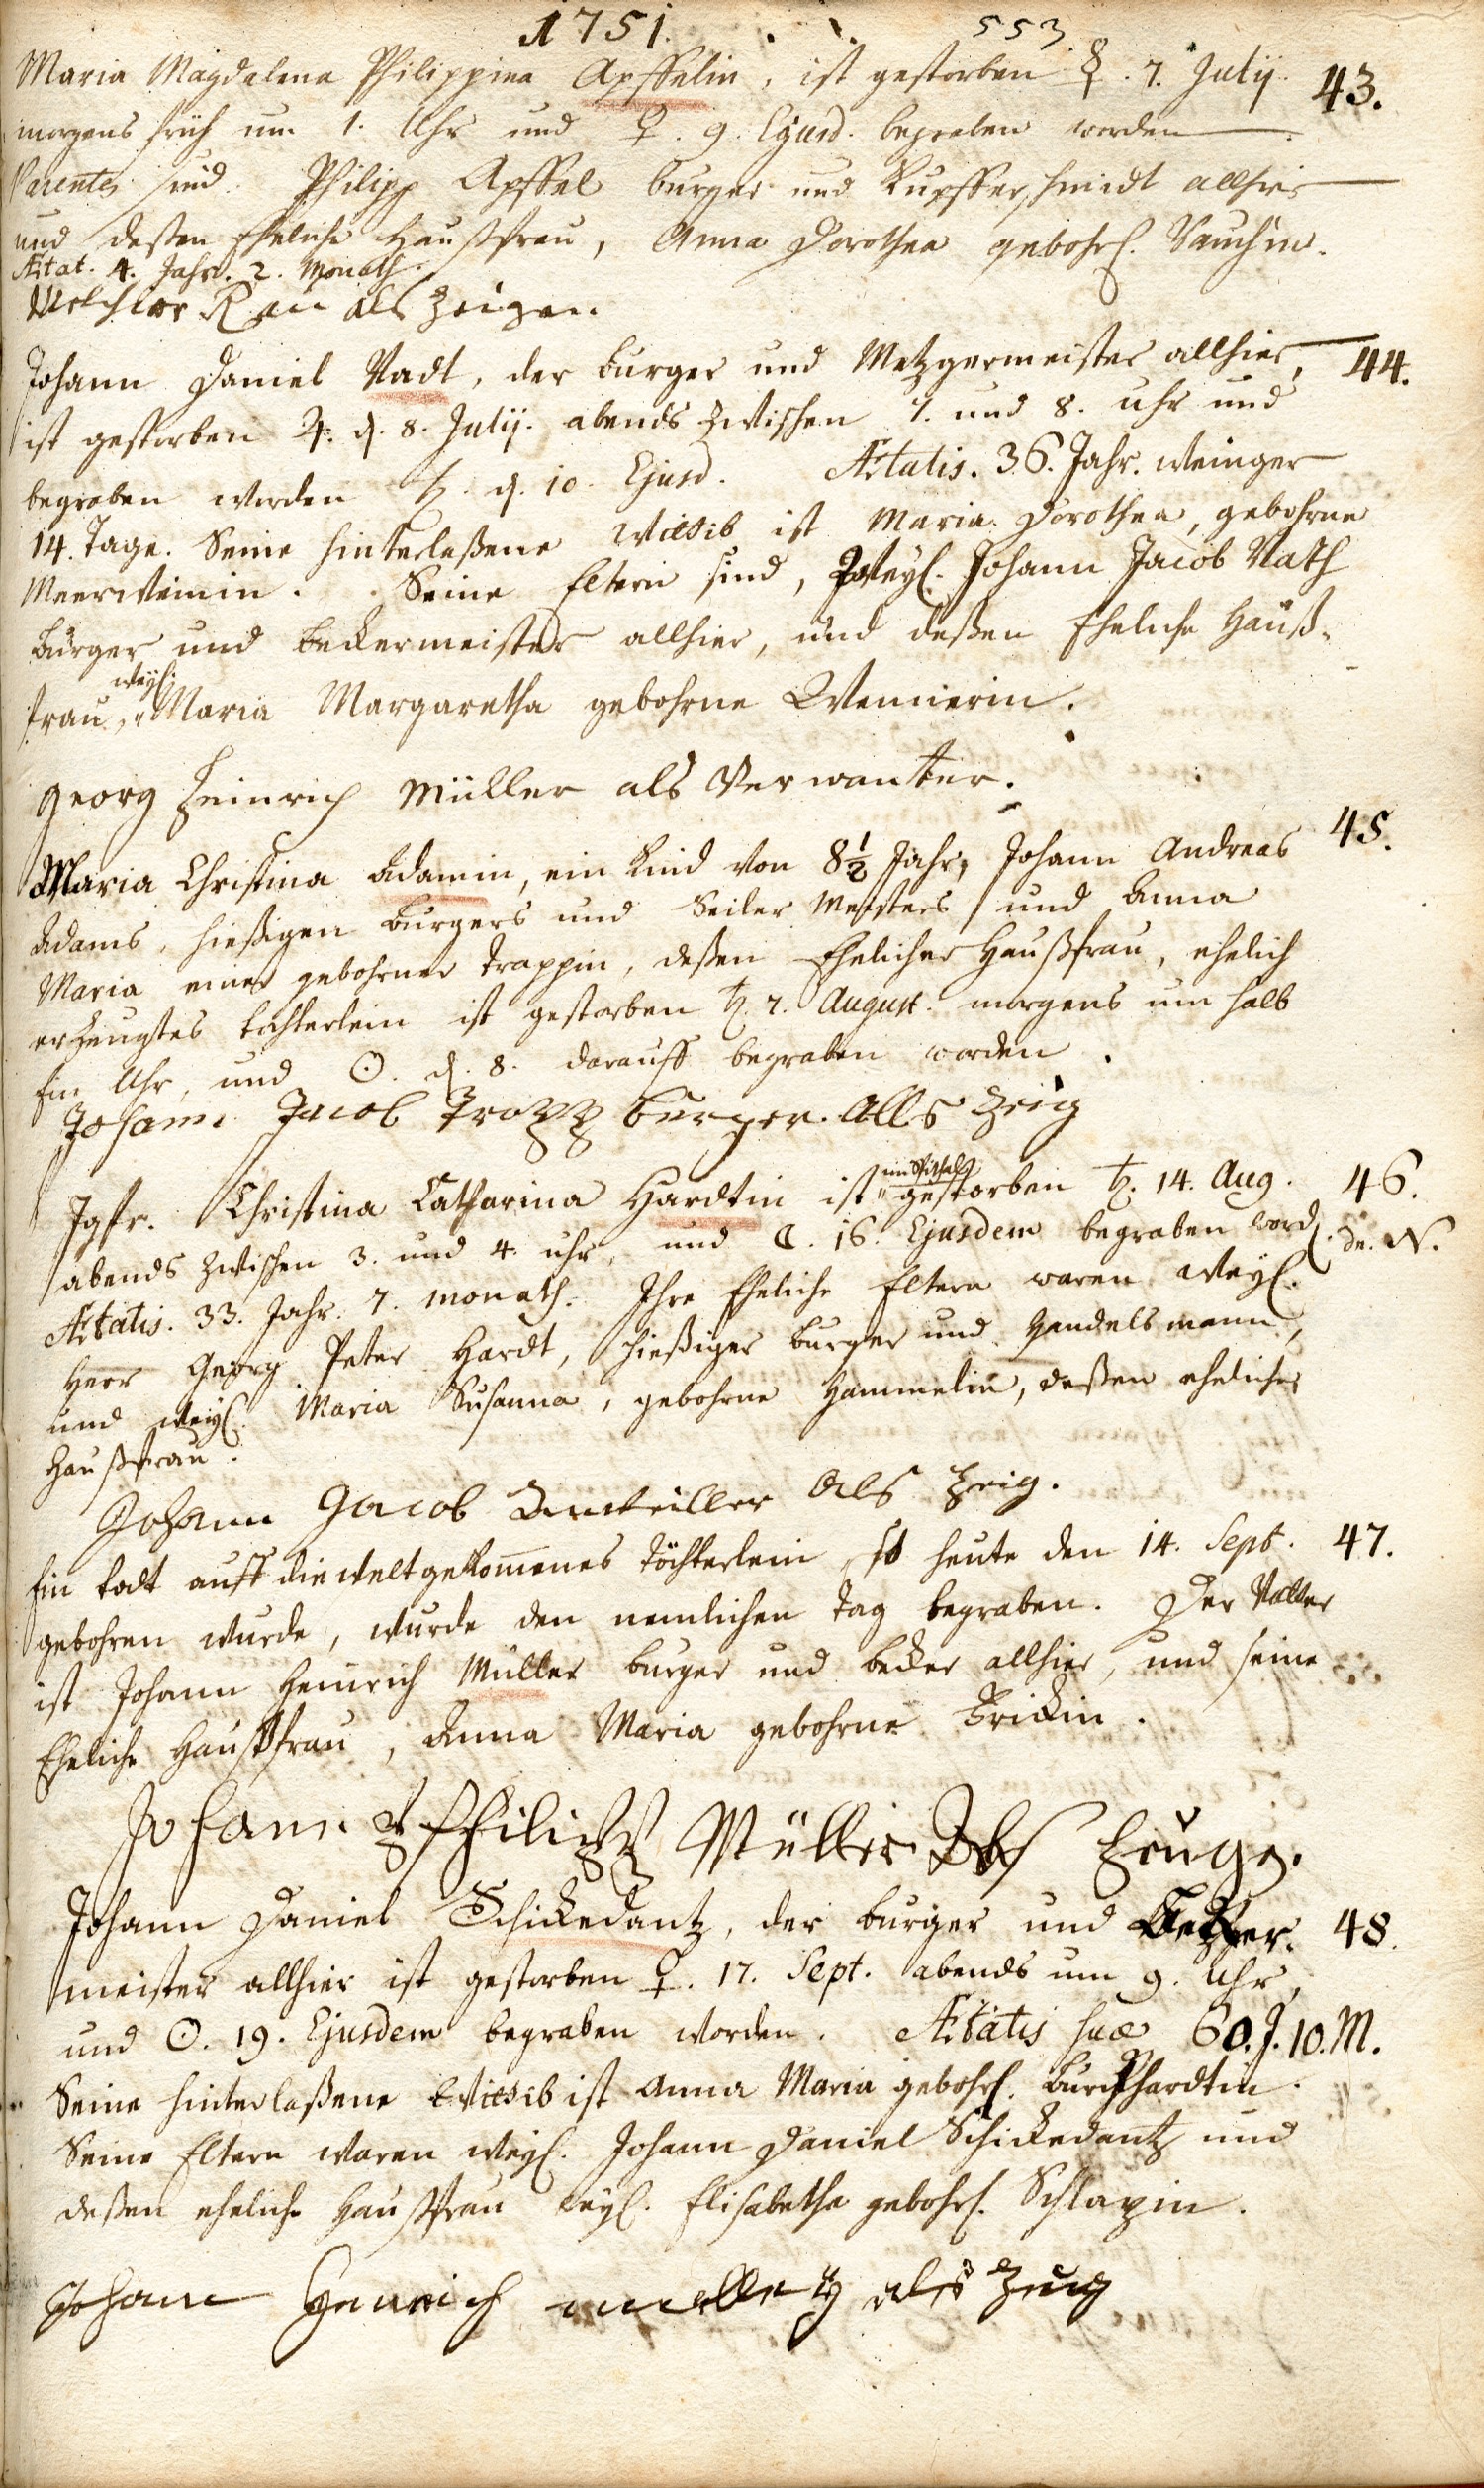 1751.
553.
Maria Magdalena Philippina Apffelin, ist gestorben ☿. 7. Julij. 43.
morgens früh um 1. Uhr und ♀. 9. Ejusd. begraben worden
Parentes sind. Philipp Apffel burger und Kupfferschmidt allhier
und deßen Eheliche Haußfrau, Anna Dorothea gebohrl. Bauchin.
Ætat. 4. Jahr. 2. Monath.
Melchior Rau als Zeigen
Johann Daniel Vadt, der burger und Metzgermeister allhier, 44.
ist gestorben ♃. d. 8. Julij. abends zwischen 7. und 8. Uhr und
begraben worden ♄. d. 10. Ejusd. Ætatis. 36. Jahr. weniger
14. Tage. Seine hinterlaßene Wittib ist Maria Dorothea, gebohrne
Meerweinin. Seine Eltern sind, Weyl. Johann Jacob Vath
burger und beckermeister allhier, und deßen Eheliche Hauß-
weyl.
frau, Maria Margaretha gebohrne Wennerin.
georg Heinrich Müller als Verwanter.
Maria Christina Adamin, ein Kind von 8½ Jahr, Johann Andreas 45.
Adams, hießigen burgers und Seiler Meisters, und Anna
Maria einer gebohrner Trappin, deßen Ehelicher Haußfrau, ehelich
erzeugtes töchterlein ist gestorben ♄. 7. August. morgens um halb
Ein Uhr, und ☉. d. 8. darauff begraben worden.
Johann Jacob Trapp burger. Alls Zeig
im Spithal
Jgfr. Christina Catharina Hardtin ist gestorben ♄. 14. Aug. 46.
abends zwischen 3. und 4. uhr, und ☾. 16. Ejusdem begraben word. de. N.
Ætatis. 33. Jahr. 7. monath. Ihre Eheliche Eltern waren Weyl.
Herr Georg Peter Hardt, hießiger burger und Handelsmann,
und weyl. Maria Susanna, gebohrne Hammelin, deßen eheliche
Haußfrau.
Johann Jacob als Zeig.
Ein todt auff die welt gekommenes Töchterlein, so heute den 14. Sept. 47.
gebohren wurde, wurde den nemlichen Tag begraben. Der Vatter
ist Johann Heinrich Müller burger und becker allhier, und seine
Eheliche Haußfrau, Anna Maria gebohrne Frickin.
Johann Philipp Müller Als Zeuge.
Johann Daniel Schickedantz, der burger und Metzger- 48.
meister allhier ist gestorben ♀. 17. Sept. abends um 9. Uhr,
und ☉. 19. Ejusdem begraben worden. Ætatis suæ 60. J. 10. M.
Seine hinterlaßene Wittib ist Anna Maria gebohrl. burckhardtin.
Seine Eltern waren weyl. Johann Daniel Schickedantz und
deßen eheliche Haußfrau weyl. Elisabetha gebohrl. Schlapin.
Johann Henrich als Zeug